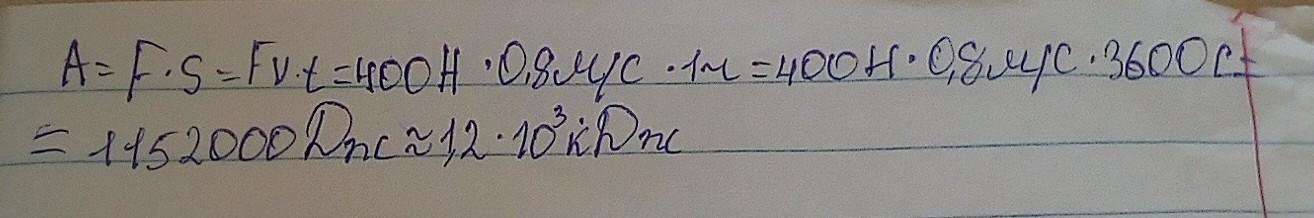 A = F · S = Fv · t = 400 Н · 0,8 м/с · 1ч = 400 Н · 0,8 м/с · 3600 с =
= 1152000 Дж ≈ 1,2 · 10³ кДж